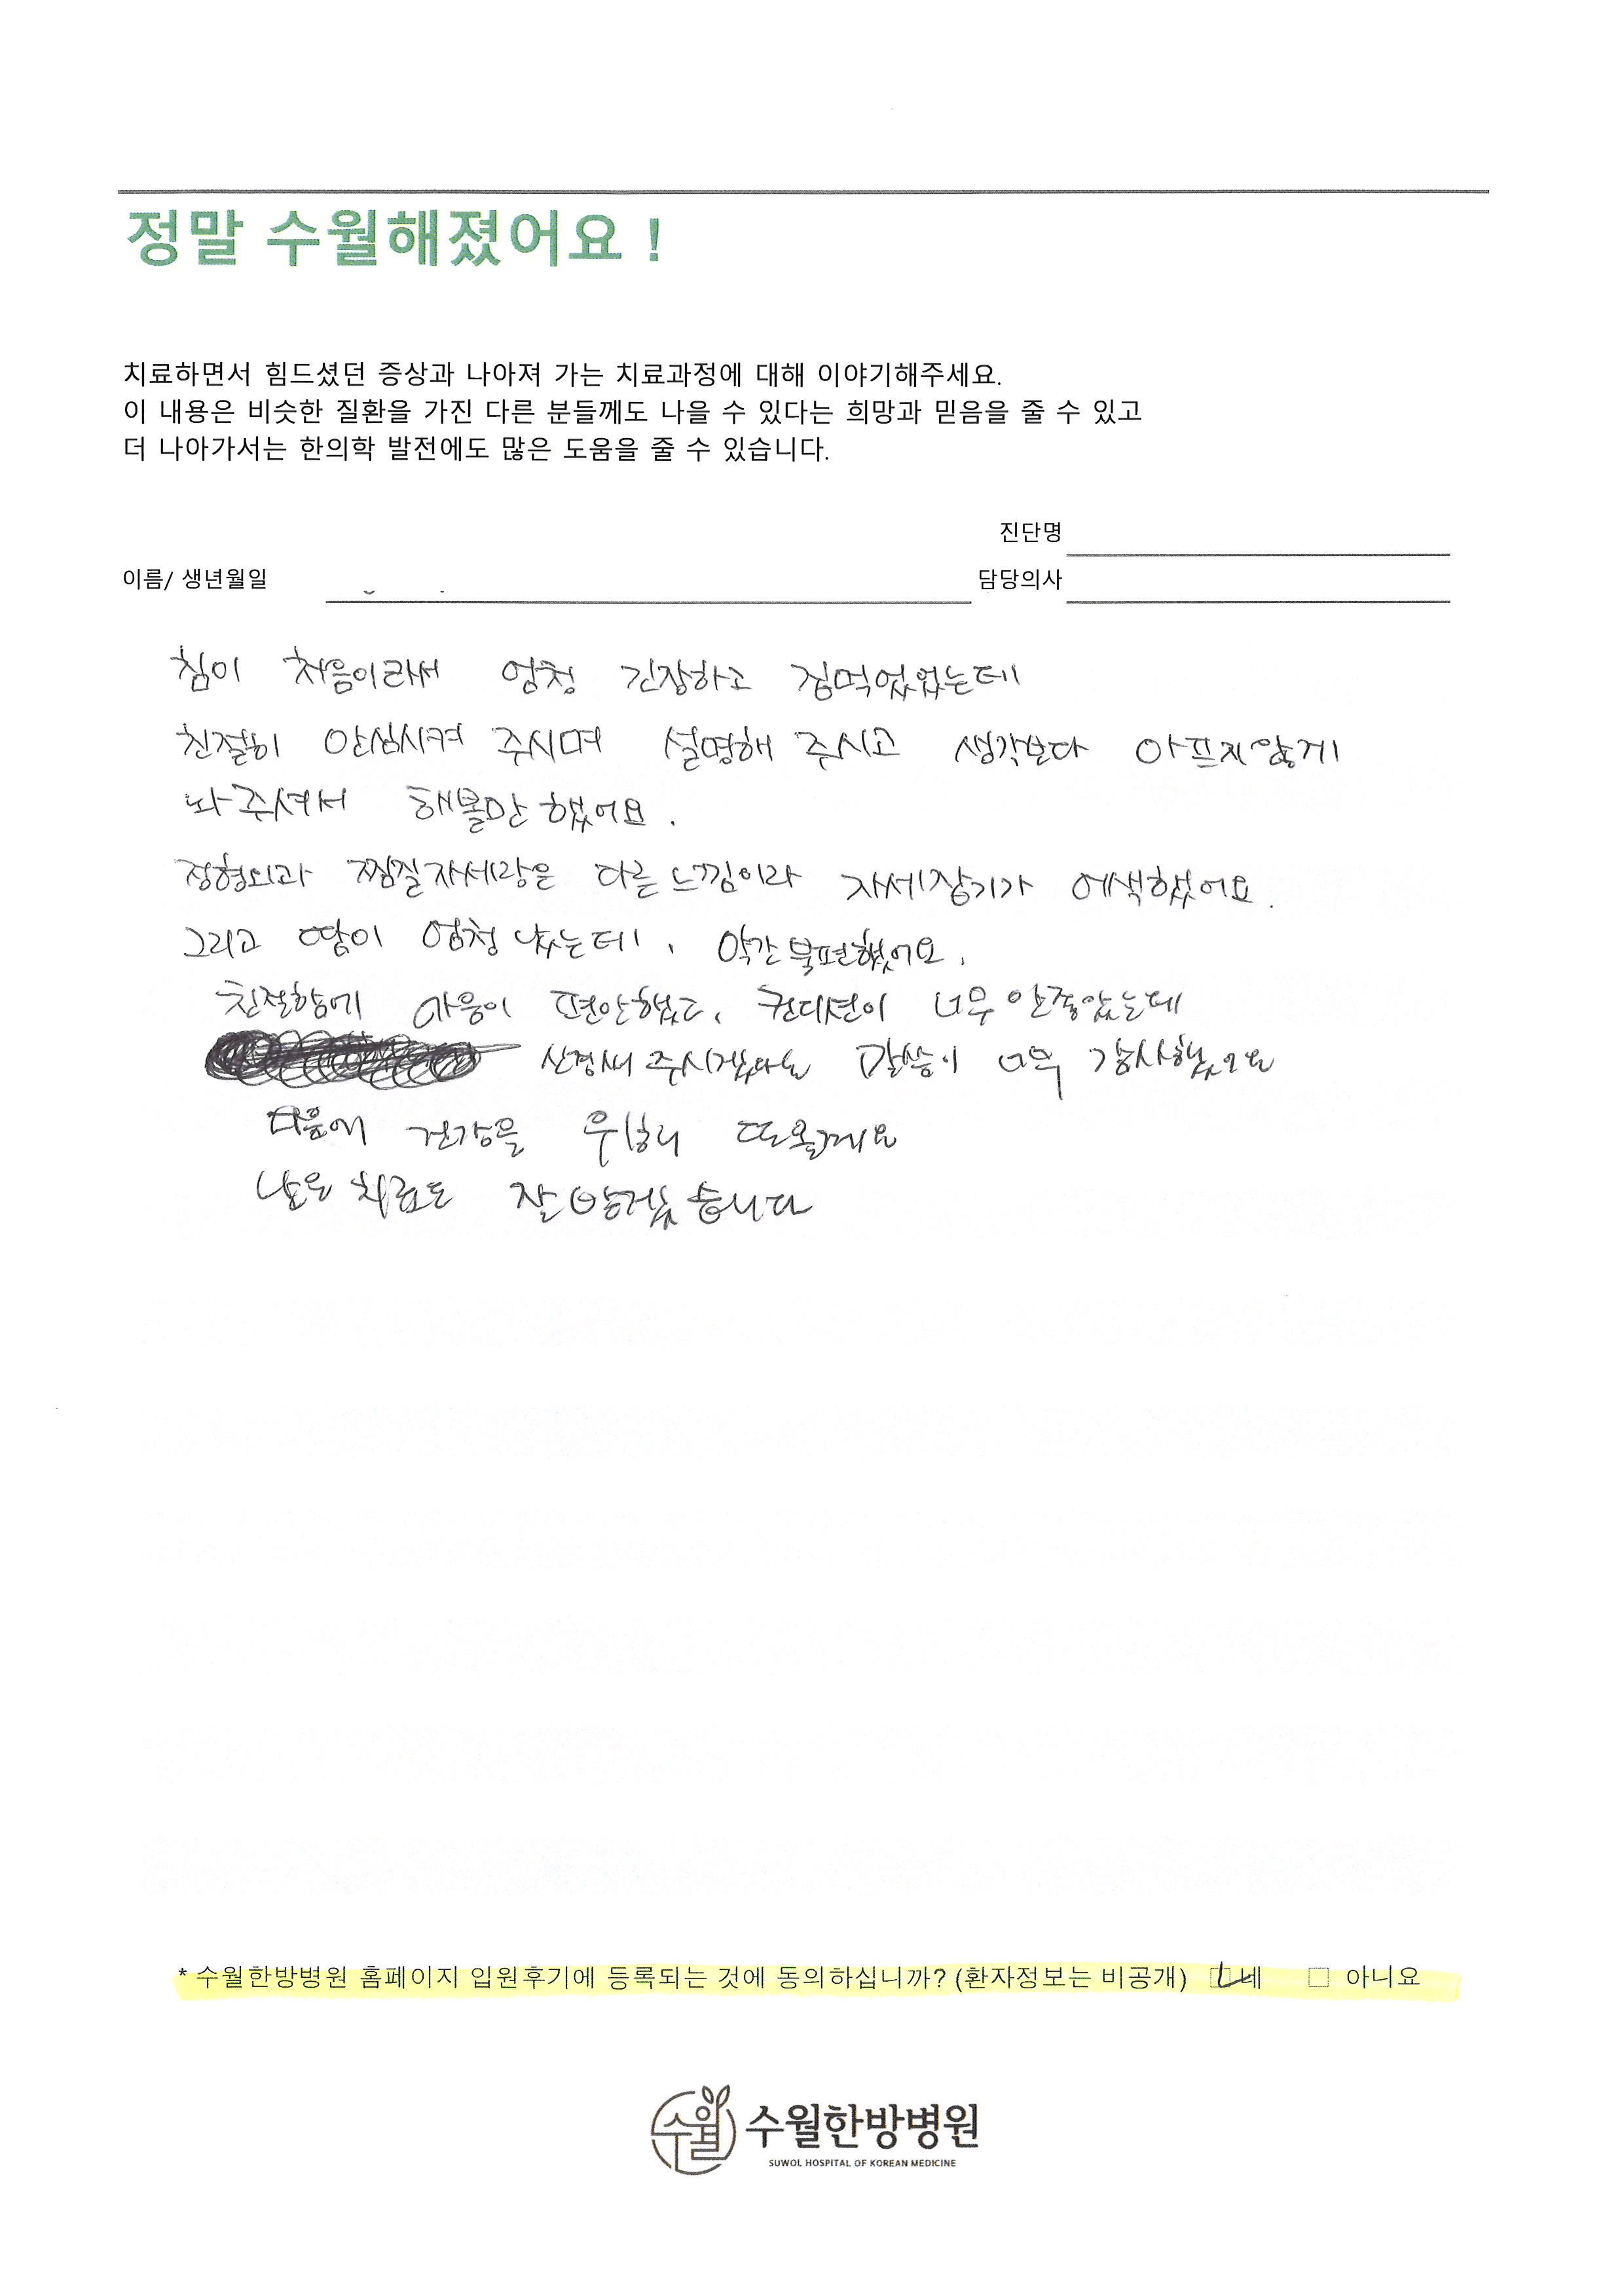 정말 수월해졌어요 !
치료하면서 힘드셨던 증상과 나아져 가는 치료과정에 대해 이야기해주세요.
이 내용은 비슷한 질환을 가진 다른 분들께도 나을 수 있다는 희망과 믿음을 줄 수 있고
더 나아가서는 한의학 발전에도 많은 도움을 줄 수 있습니다.
진단명
이름/ 생년월일
담당의사
침이 처음이라서 엄청 긴장하고 겁먹었었는데
친절히 안심시켜 주시며 설명해 주시고 생각보다 아프지않게
놔주셔서 해볼만 했어요.
정형외과 찜질자세랑은 다른 느낌이라 자세잡기가 어색했어요.
그리고 땀이 엄청 났는데, 약간 불편했어요.
친절함에 마음이 편안했고, 컨디션이 너무 안좋았는데
신경써 주시겠다는 말씀이 너무 감사했어요
다음에 건강을 위해 또올게요
남은 치료도 잘 받겠습니다
* 수월한방병원 홈페이지 입원후기에 등록되는 것에 동의하십니까? (환자정보는 비공개) 네 아니요
수월 수월한방병원
SUWOL HOSPITAL OF KOREAN MEDICINE